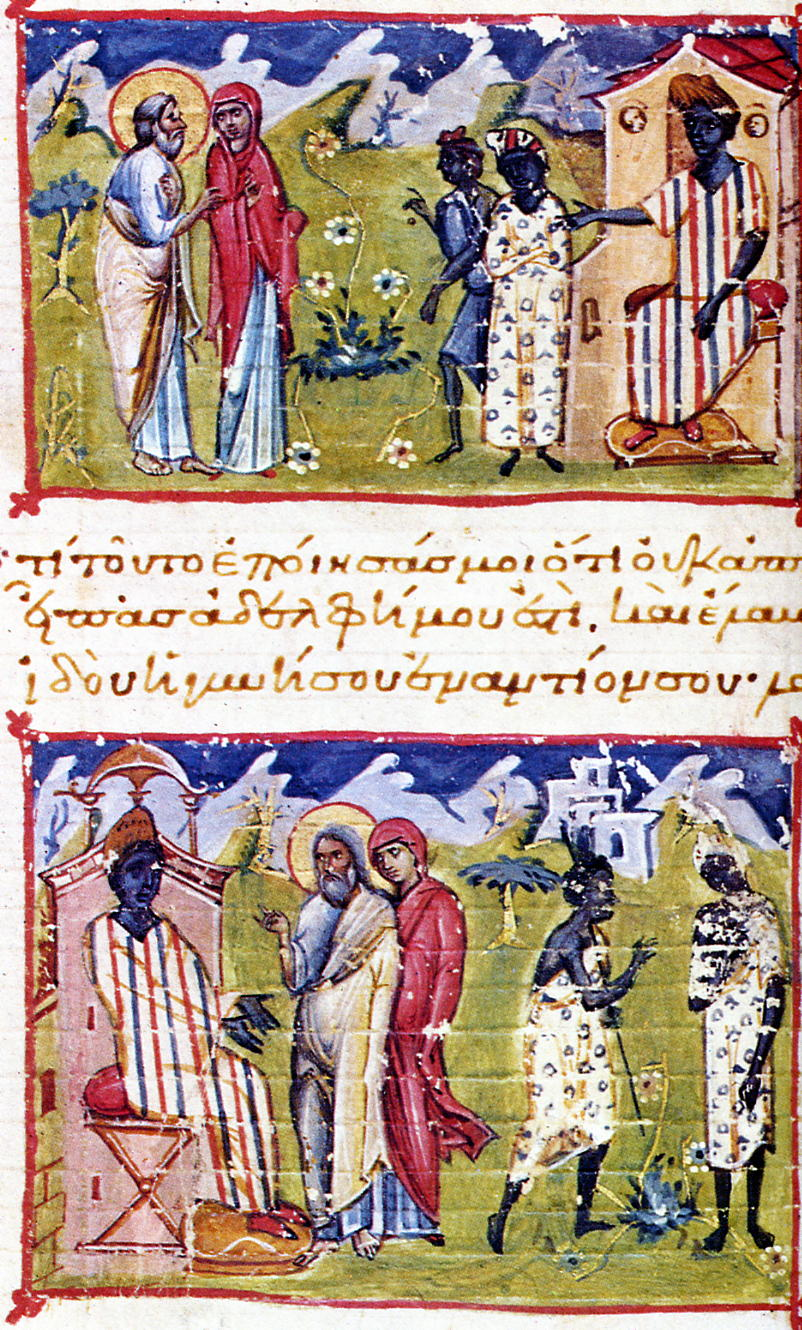 τί τοῦτο ἐποίησάσ μοι ὅτι οὐκ ἀπη
εἶπασ ἀδελφή μου ἐστί. καὶ ἔλα
ἰδοὺ ἡ γυνή σου ἐναντίον σου· λα